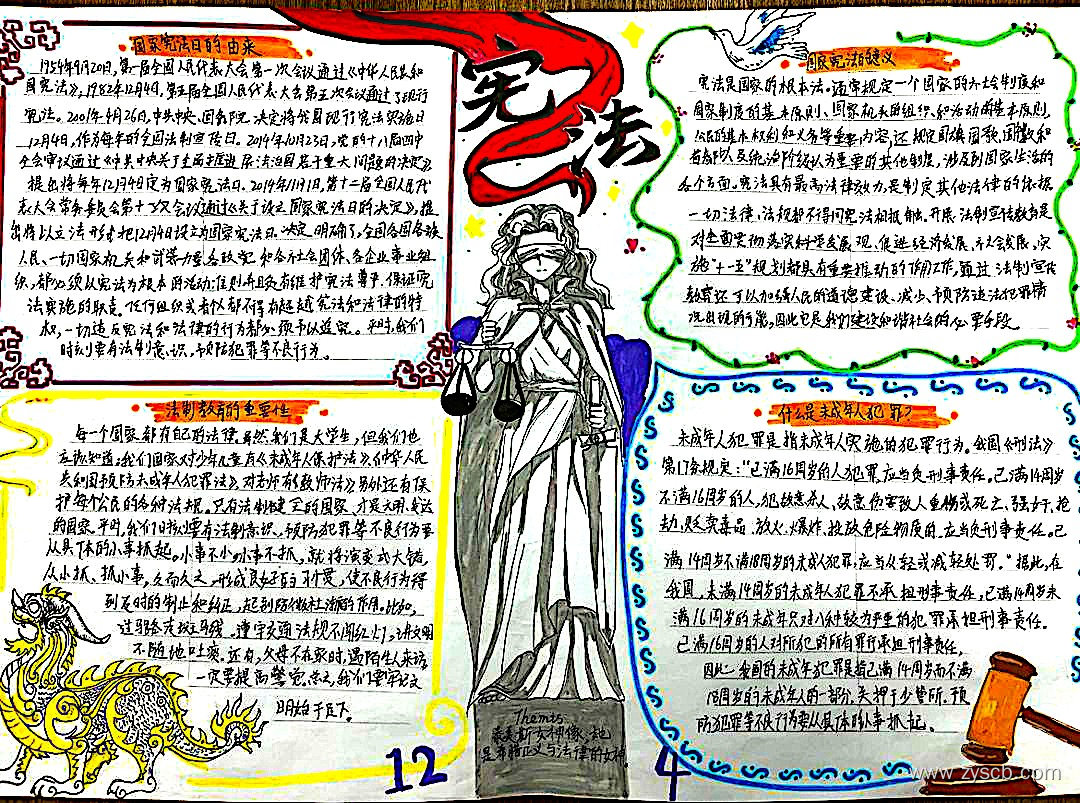 国家宪法日的由来
1954年9月20日,第一届全国人民代表大会第一次会议通过《中华人民共和
国宪法》,1982年12月4日,第五届全国人民代表大会第五次会议通过了现行
宪法。2001年4月26日,中共中央、国务院决定将我国现行宪法实施日
12月4日,作为每年的全国法制宣传日。2014年10月23日,党的十八届四中
全会审议通过《中共中央关于全面推进依法治国若干重大问题的决定》,
提出将每年12月4日定为国家宪法日。2014年11月1日,第十二届全国人民代
表大会常务委员会第十一次会议通过《关于设立国家宪法日的决定》,提
出将以立法形式把12月4日设立为国家宪法日。决定明确了,全国各国各族
人民、一切国家机关和武装力量各政党和各社会团体、各企业事业组
织,都必须以宪法为根本的活动准则,并且负有维护宪法尊严、保证宪
法实施的职责。任何组织或者个人都不得有超越宪法和法律的特
权,一切违反宪法和法律的行为都必须予以追究。平时,我们
时刻要有法制意识,预防犯罪等不良行为。
宪法
国家宪法的意义
宪法是国家的根本法。通常规定一个国家的社会制度和
国家制度的基本原则、国家机关的组织和活动的基本原则,
公民的基本权利和义务等重要内容,还规定国旗国歌、国徽和
首都以及统治阶级认为重要的其他制度,涉及到国家生活的
各个方面。宪法具有最高法律效力,是制定其他法律的依据
一切法律、法规都不得同宪法相抵触。开展法制宣传教育是
对全面贯彻落实科学发展观、促进经济发展和社会发展,实
施"十一五"规划都具有重要推动的作用工作,通过法制宣传
教育还可以加强人民的道德建设、减少、预防违法犯罪情
况出现的可能,因此它是我们建设和谐社会的必要手段。
法制教育的重要性
每一个国家都有自己的法律,虽然我们是大学生,但我们也
应该知道:我们国家对少年儿童有《未成年人保护法》、《中华人民
共和国预防未成年人犯罪法》,对老师有《教师法》,另外还有保
护每个公民的各种法规。只有法制健全的国家,才是文明、发达
的国家。平时,我们时刻要有法制意识,预防犯罪等不良行为要
从具体的小事抓起。小事不小,小事不抓,就将演变成大错,
从小抓、抓小事,久而久之,形成良好的习惯,使不良行为得
到及时的制止和纠正,起到防微杜渐的作用。比如,
过马路走斑马线。遵守交通法规不闯红灯,讲文明
不随地吐痰。还有,父母不在家时,遇陌生人来访,
一定要提高警觉。总之,我们要牢记文
明始于足下。
什么是未成年人犯罪?
未成年人犯罪是指未成年人实施的犯罪行为。我国《刑法》
第17条规定:"已满16周岁的人犯罪,应当负刑事责任。已满14周岁
不满16周岁的人,犯故意杀人、故意伤害致人重伤或死亡、强奸、抢
劫、贩卖毒品、放火、爆炸、投放危险物质的,应当负刑事责任。已
满14周岁不满18周岁的未成人犯罪,应当从轻或减轻处罚。"据此,在
我国,未满14周岁的未成年人犯罪不承担刑事责任,已满14周岁未
满16周岁的未成年只对八种较为严重的犯罪承担刑事责任。
已满16周岁的人对所犯的所有罪行承担刑事责任,
因此,我国的未成年犯罪是指已满14周岁而不满
18周岁的未成年人的一部分,关押于少管所。预
防犯罪等不良行为要从具体的小事抓起。
Themis
忒美斯女神像,她
是希腊正义与法律的女神
12
4
www.zyscb.com